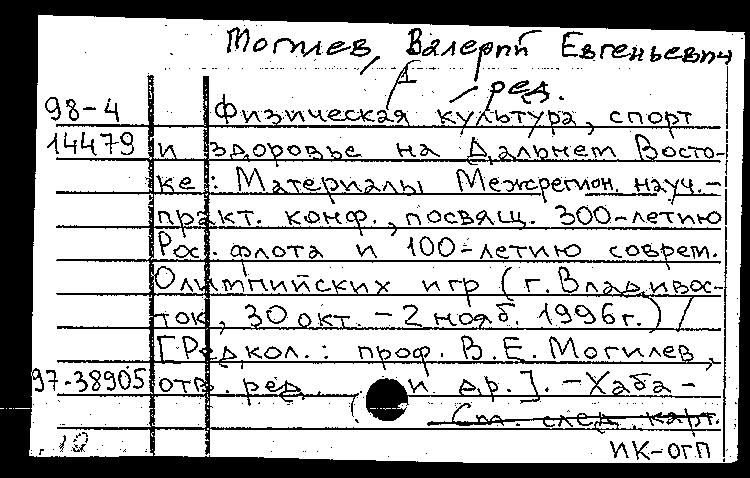 Могилев, Валерий Евгеньевич
ред.
98-4 Физическая культура, спорт
14479 и здоровье на Дальнем Восто-
ке: Материалы Межрегион. науч.-
практ. конф., посвящ. 300-летию
Рос. флота и 100-летию соврем.
Олимпийских игр (г. Владивос-
ток, 30 окт. - 2 нояб. 1996г.) /
[Редкол.: проф. В.Е. Могилев,
97-38905 отв. ред. и др.]. - Хаба-
См. след. карт.
ИК-ОГП